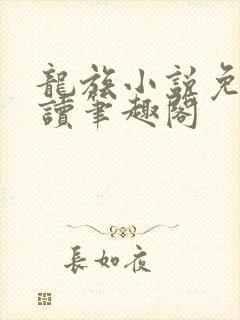 龍族小說免
讀筆趣閣
長如夜